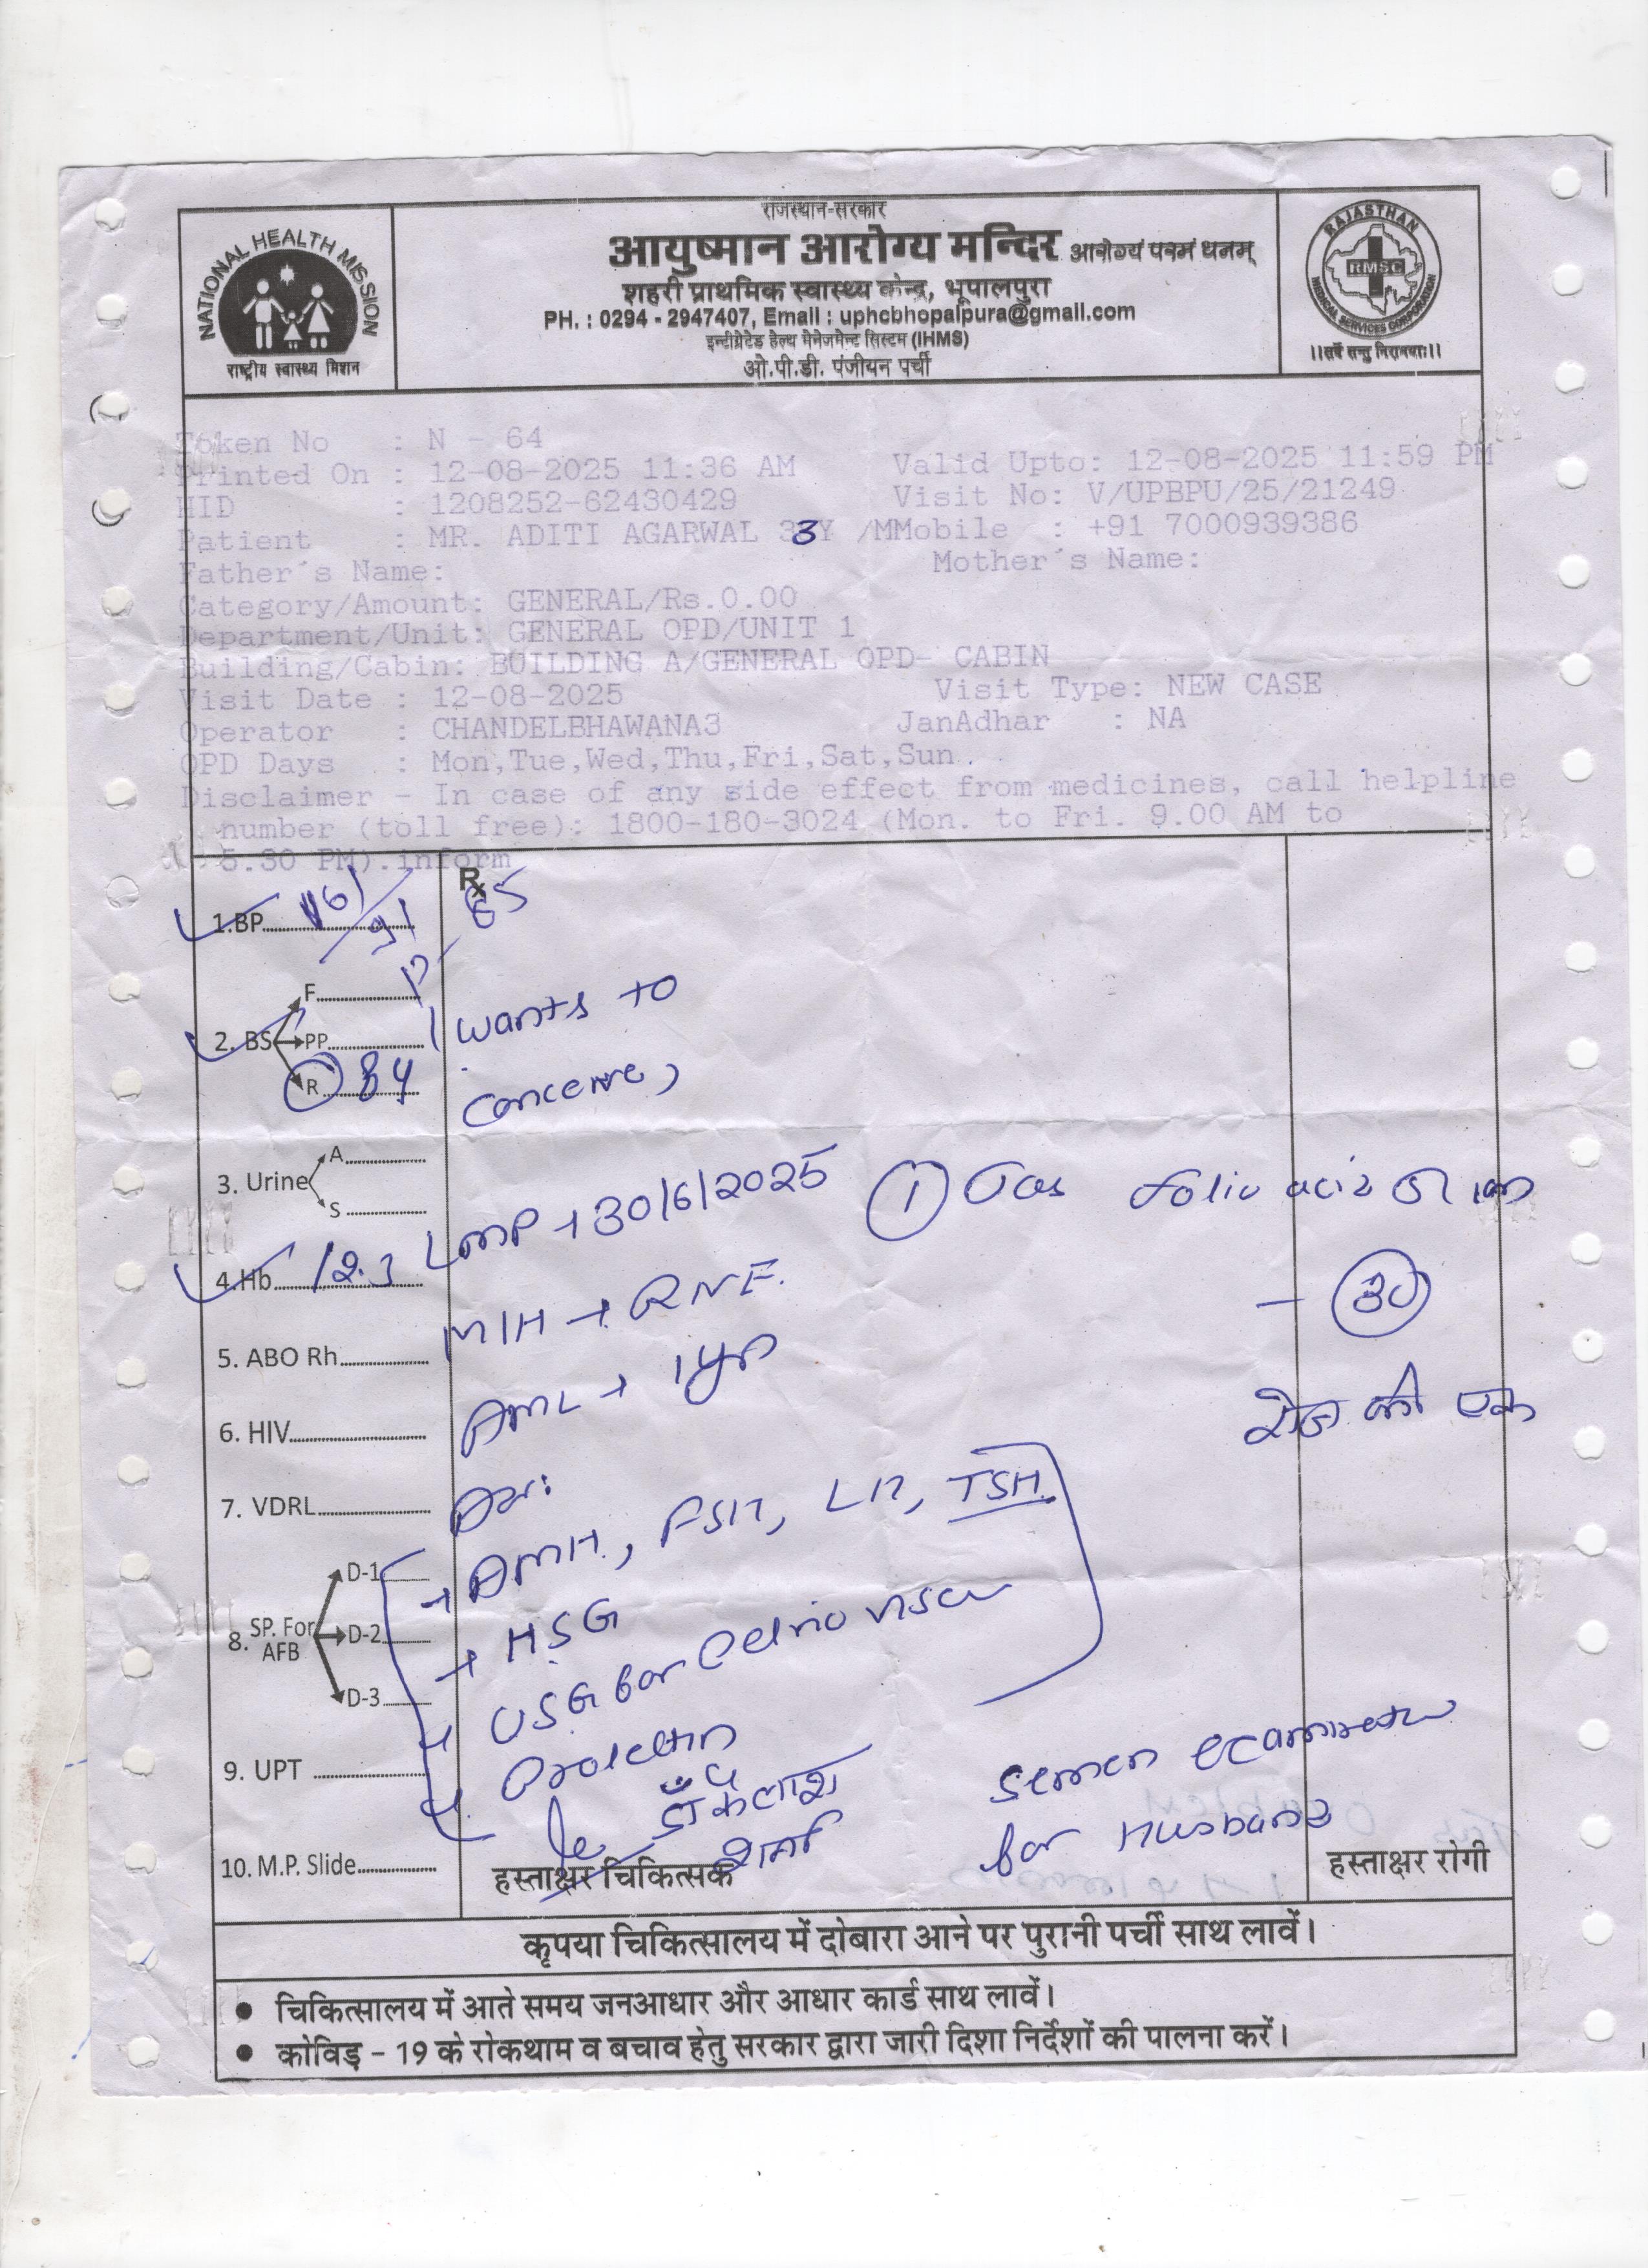 राजस्थान-सरकार
आयुष्मान आरोग्य मन्दिर आरोग्यं परमं धनम्
शहरी प्राथमिक स्वास्थ्य केन्द्र, भूपालपुरा
PH. : 0294 - 2947407, Email : uphcbhopalpura@gmail.com
इन्टीग्रेटेड हेल्थ मेनेजमेन्ट सिस्टम (IHMS)
ओ.पी.डी. पंजीयन पर्ची
NATIONAL HEALTH MISSION
राष्ट्रीय स्वास्थ्य मिशन
RAJASTHAN
RMSC
MEDICAL SERVICES CORPORATION
।।सर्वे सन्तु निरामयाः।।
Token No : N - 64
Printed On : 12-08-2025 11:36 AM Valid Upto: 12-08-2025 11:59 PM
HID : 1208252-62430429 Visit No: V/UPBPU/25/21249
Patient : MR. ADITI AGARWAL 33Y /MMobile : +91 7000939386
Father's Name: Mother's Name:
Category/Amount: GENERAL/Rs.0.00
Department/Unit: GENERAL OPD/UNIT 1
Building/Cabin: BUILDING A/GENERAL OPD- CABIN
Visit Date : 12-08-2025 Visit Type: NEW CASE
Operator : CHANDELBHAWANA3 JanAdhar : NA
OPD Days : Mon,Tue,Wed,Thu,Fri,Sat,Sun.
Disclaimer - In case of any side effect from medicines, call helpline
number (toll free): 1800-180-3024 (Mon. to Fri. 9.00 AM to
5.30 PM).inform
Rx
1.BP
2. BS F
PP
R 84
wants to
3. Urine A
S
LMP → 30/6/2025
① folic acid
4.Hb 12.3
M/H →
30
5. ABO Rh
AML → 1yr
रोज की एक
6. HIV
Adv:
7. VDRL
→ AMH, FSH, LH, TSH
8. SP. For AFB D-1
D-2
D-3
→ HSG
USG for Pelvic
9. UPT
Prolactin
semen
for Husband
डॉ कैलाश
शर्मा
10. M.P. Slide
हस्ताक्षर चिकित्सक
हस्ताक्षर रोगी
कृपया चिकित्सालय में दोबारा आने पर पुरानी पर्ची साथ लावें।
● चिकित्सालय में आते समय जनआधार और आधार कार्ड साथ लावें।
● कोविड़ - 19 के रोकथाम व बचाव हेतु सरकार द्वारा जारी दिशा निर्देशों की पालना करें।